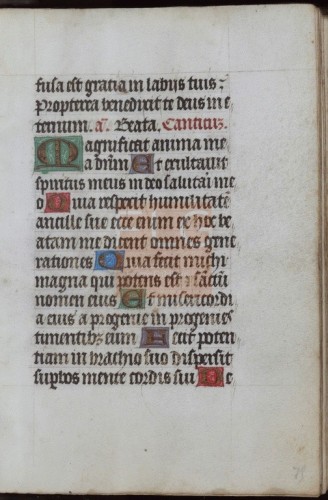 fusa est gratia in labijs tuis:
Propterea benedixit te deus in e
ternum. a. Beata. Canticum.
Magnificat anima me
a dnm Et exultauit
spiritus meus in deo salutari me
o Quia respexit humilitatē
ancille sue ecce enim ex hoc be
atam me dicent omnes gene
rationes Quia fecit michi
magna qui potens est et sactū
nomen eius Et misericordi
a eius a progenie in progenies
timentibꝫ eum Fecit poten
tiam in brachio suo dispersit
supbos mente cordis sui De